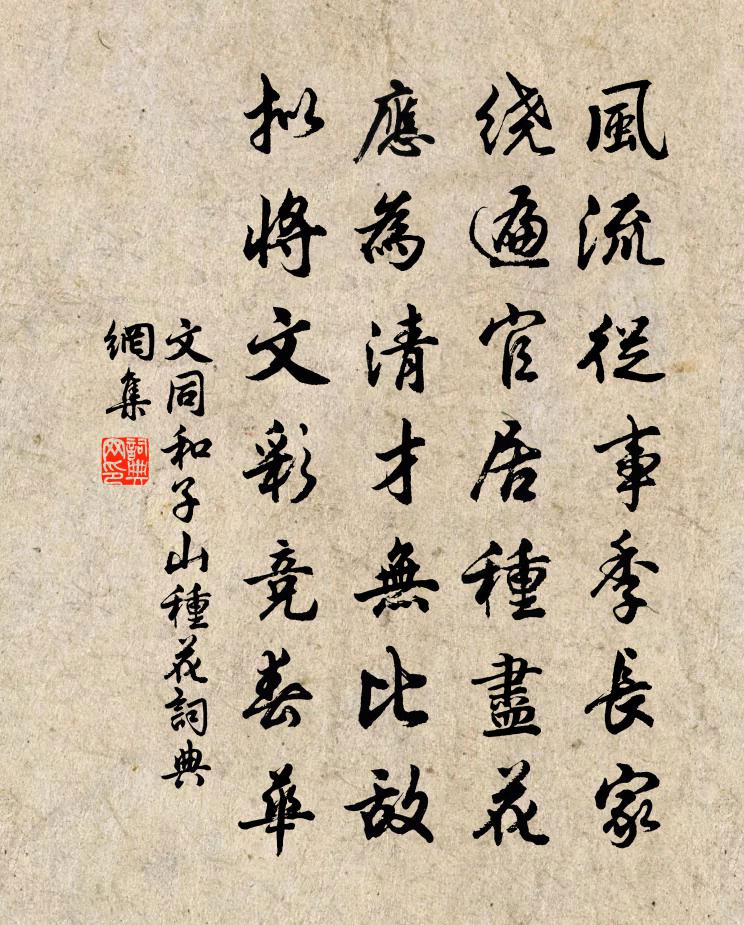 風流從事季長家
绕遍官居種盡花
應為清才無比敌
拟將文彩竞春華
文同和子山種花詞典
網集
詞典
网印